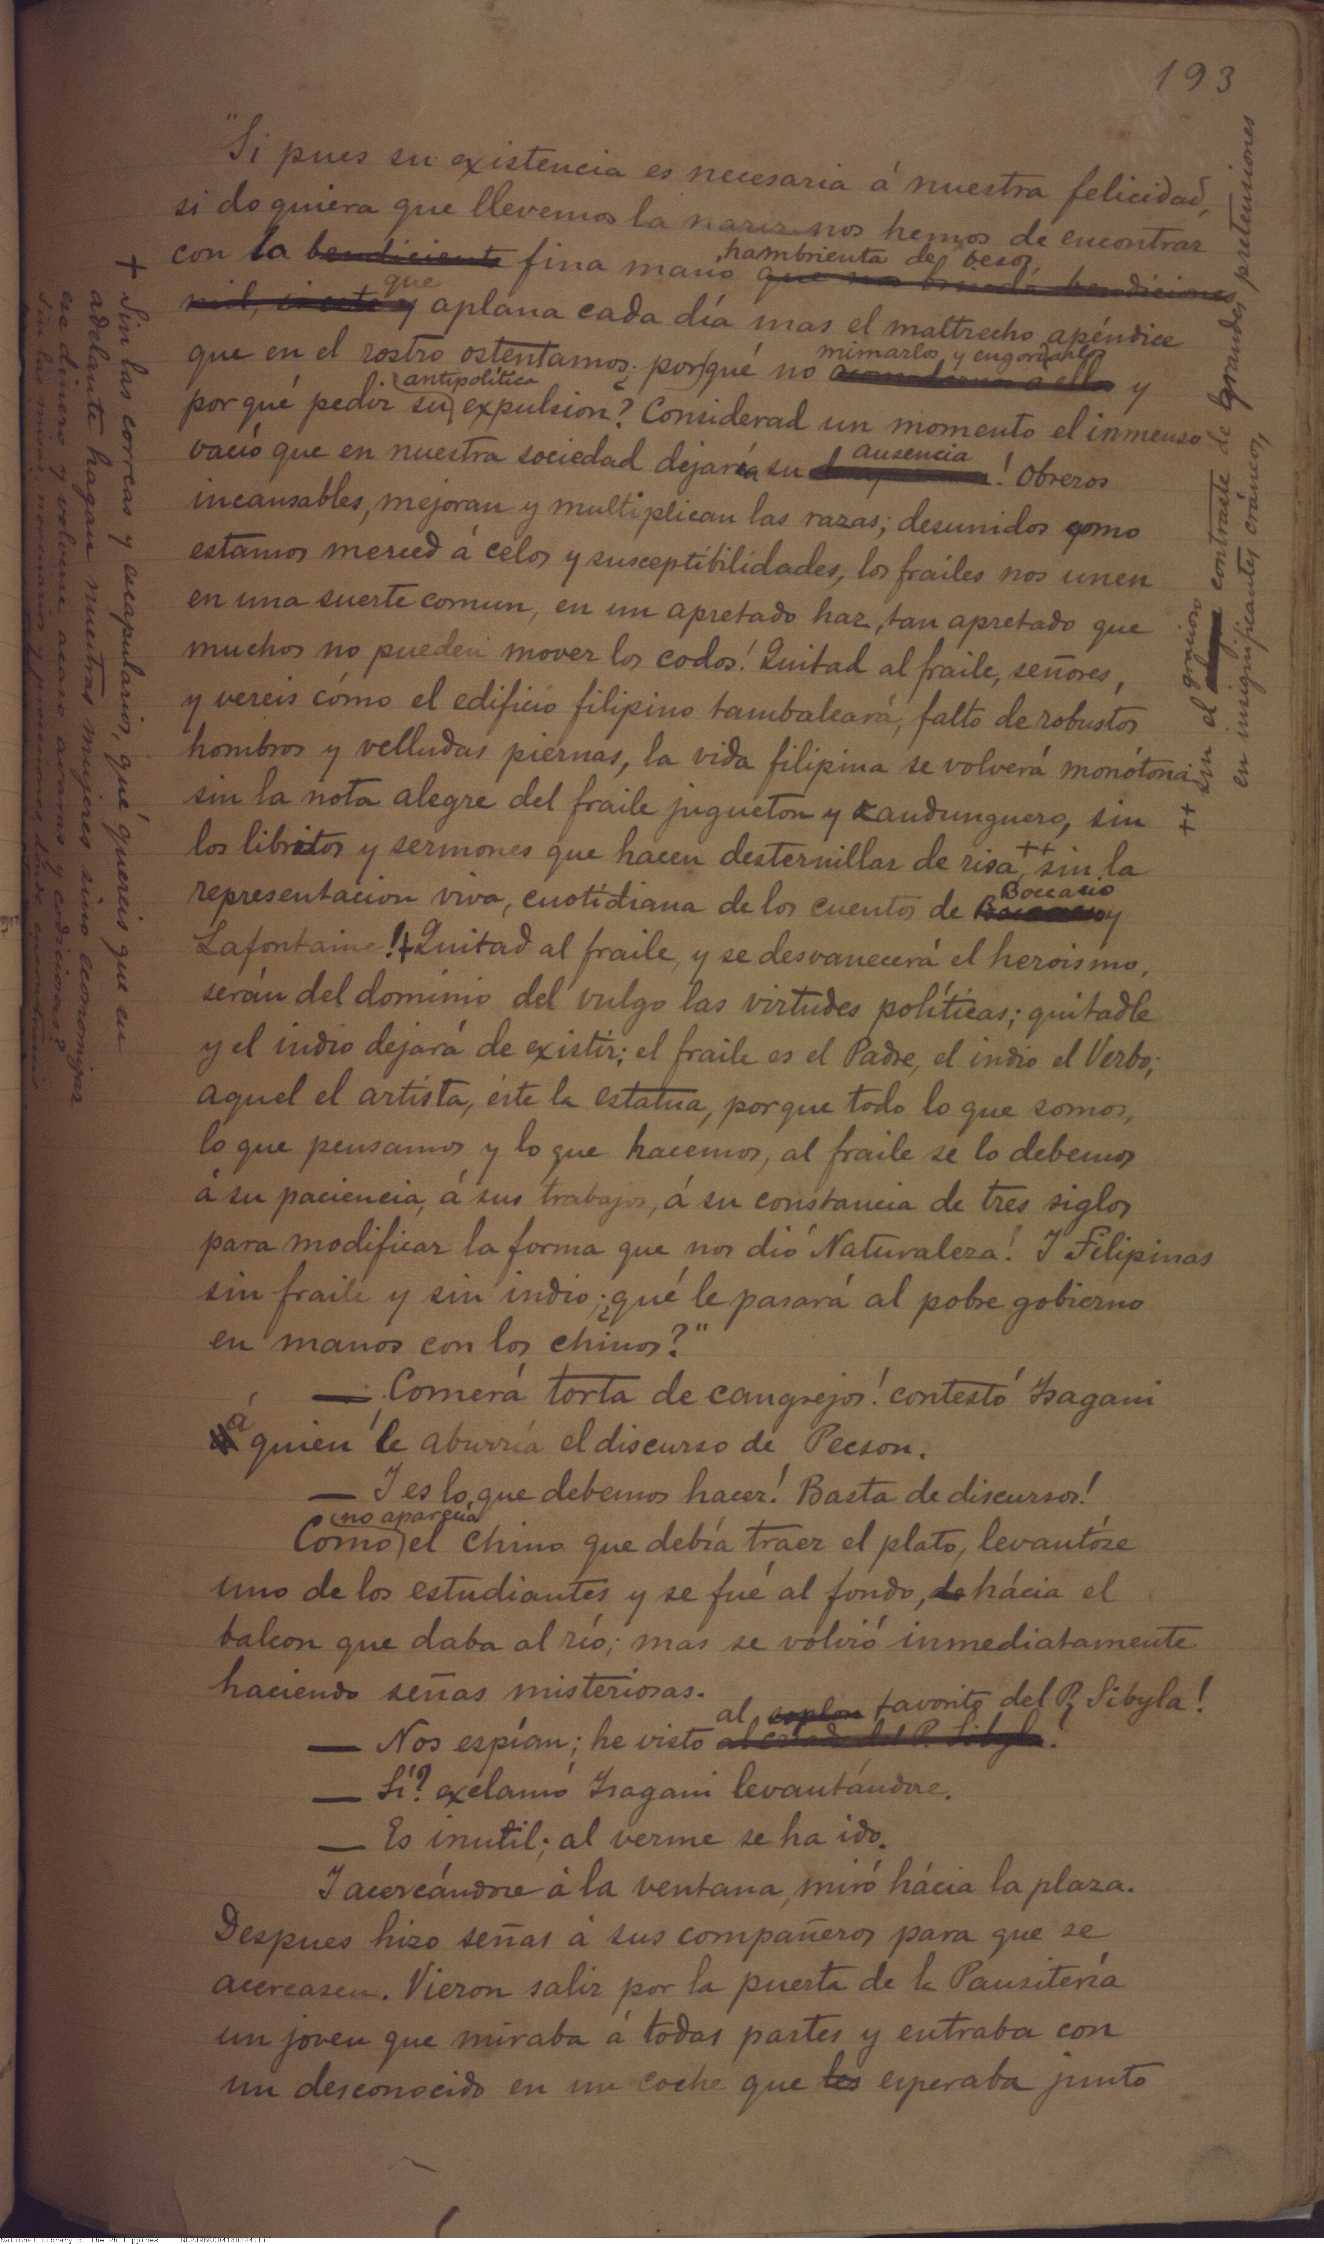 193
"Si pues su existencia es necesaria á nuestra felicidad,
si do quiera que llevemos la nariz nos hemos de encontrar
con la bendiciente fina mano hambrienta de besos,
que aplana cada día mas el maltrecho apéndice
que en el rostro ostentamos, ¿por qué no mimarlos y engordarlos y
por qué pedir su antipolítica expulsion? Considerad un momento el inmenso
vacío que en nuestra sociedad dejaría su ausencia! Obreros
incansables, mejoran y multiplican las razas; desunidos como
estamos merced á celos y susceptibilidades, los frailes nos unen
en una suerte comun, en un apretado haz, tan apretado que
muchos no pueden mover los codos! Quitad al fraile, señores,
y vereis cómo el edificio filipino tambaleará, falto de robustos
hombros y velludas piernas, la vida filipina se volverá monótona
sin la nota alegre del fraile jugueton y zandunguero, sin
los libritos y sermones que hacen desternillar de risa, ++ sin la
representacion viva, cuotidiana de los cuentos de Boccacio y
Lafontaine! + Quitad al fraile, y se desvanecerá el heroismo,
serán del dominio del vulgo las virtudes políticas; quitadle
y el indio dejará de existir; el fraile es el Padre, el indio el Verbo;
aquel el artista, éste la estatua, porque todo lo que somos,
lo que pensamos y lo que hacemos, al fraile se lo debemos
á su paciencia, á sus trabajos, á su constancia de tres siglos
para modificar la forma que nos dió Naturaleza! Y Filipinas
sin fraile y sin indio, ¿qué le pasará al pobre gobierno
en manos con los chinos?"
— Comerá torta de cangrejos! contestó Isagani
á quien le aburría el discurso de Pecson.
— Y es lo que debemos hacer! Basta de discursos!
Como no aparecía el chino que debía traer el plato, levantóse
uno de los estudiantes y se fué al fondo, hácia el
balcon que daba al río; mas se volvió inmediatamente
haciendo señas misteriosas.
— Nos espían; he visto al favorito del P. Sibyla!
— Sí? exclamó Isagani levantándose.
— Es inutil; al verme se ha ido.
Y acercándose á la ventana, miró hácia la plaza.
Despues hizo señas á sus compañeros para que se
acercasen. Vieron salir por la puerta de la Pansitería
un joven que miraba á todas partes y entraba con
un desconocido en un coche que les esperaba junto
+ Sin las correas y escapularios, qué quereis que en
adelante hagan nuestras mujeres sino economizar
ese dinero y volverse acaso avaras y codiciosas?
Sin las misas, novenarios y procesiones dónde encontrareis
++ sin el gracioso contraste de grandes pretensiones
en insignificantes cráneos,